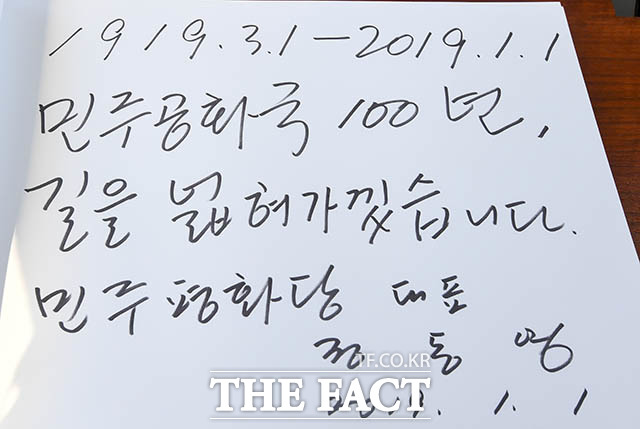 1919.3.1-2019.1.1
민주공화국 100년,
길을 넓혀가겠습니다.
민주평화당 대표
정동영
TF.CO.KR
THE FACT
2019. 1. 1